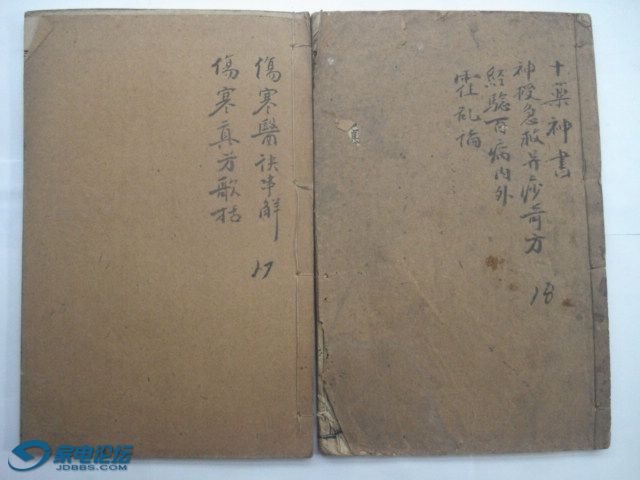 傷寒醫訣串解
傷寒真方歌括
17
十藥神書
神授急救异痧奇方
経驗百病內外
霍乱論
18
家电论坛
JDBBS.COM